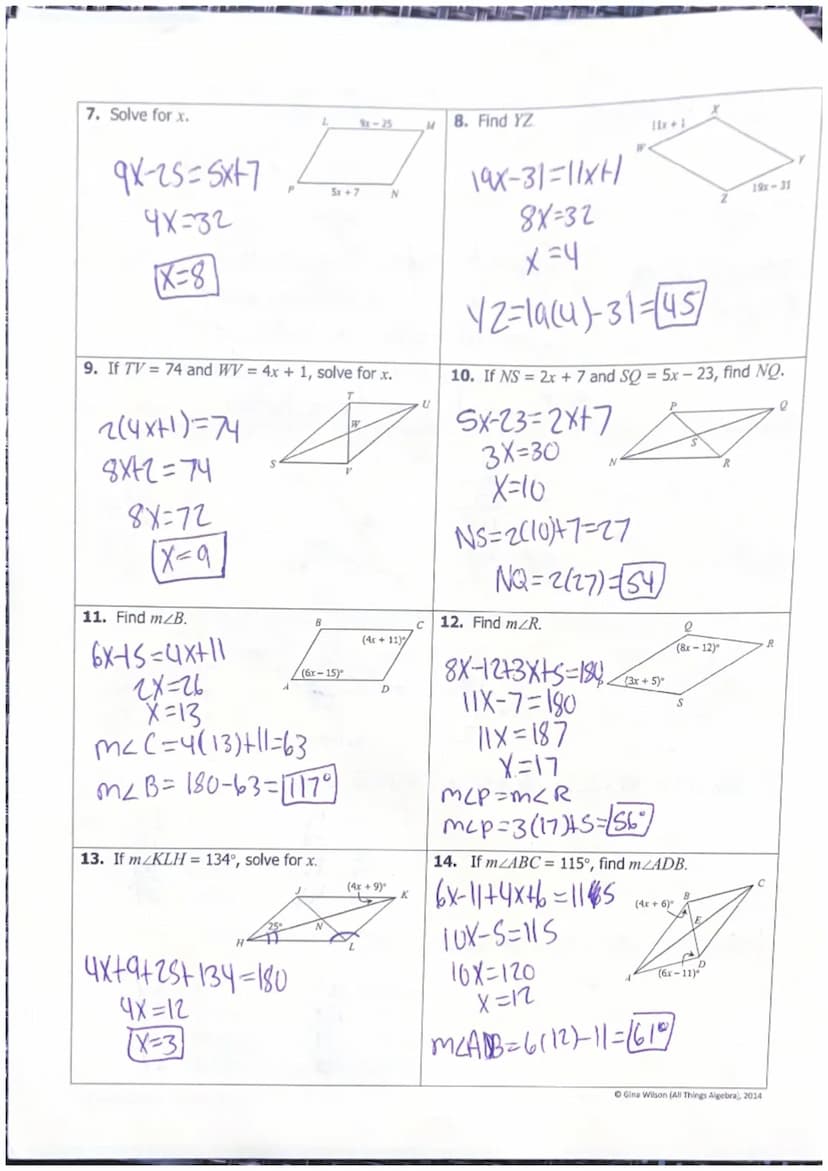 7. Solve for x.
L
9x – 25
M
P
5x + 7
N
9x-25=5x+7
4x=32
x=8
8. Find YZ
X
11x + 1
W
Y
Z
19x – 31
19x-31=11x+1
8x=32
x=4
YZ=19(4)-31=45
9. If TV = 74 and WV = 4x + 1, solve for x.
T
U
W
S
V
2(4x+1)=74
8x+2=74
8x=72
x=9
10. If NS = 2x + 7 and SQ = 5x – 23, find NQ.
P
Q
S
N
R
5x-23=2x+7
3x=30
x=10
NS=2(10)+7=27
NQ=2(27)=54
11. Find m∠B.
B
C
(4x + 11)°
(6x – 15)°
A
D
6x-15=4x+11
2x=26
x=13
m∠C=4(13)+11=63
m∠B=180-63=117°
12. Find m∠R.
Q
(8x – 12)°
R
P
(3x + 5)°
S
8x-12+3x+5=180
11x-7=180
11x=187
x=17
m∠P=m∠R
m∠P=3(17)+5=56°
13. If m∠KLH = 134°, solve for x.
J
(4x + 9)°
K
25°
N
H
L
4x+9+25+134=180
4x=12
x=3
14. If m∠ABC = 115°, find m∠ADB.
C
B
(4x + 6)°
E
D
A
(6x – 11)°
6x-11+4x+6=115
10x-5=115
10x=120
x=12
m∠ADB=6(12)-11=61°
© Gina Wilson (All Things Algebra), 2014